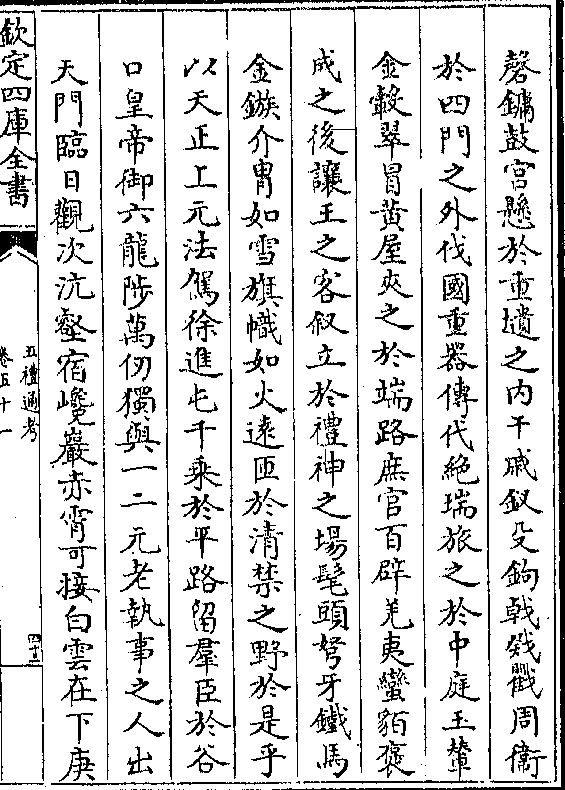 磬鏞鼓宮懸於重壝之內干戚釵殳鉤戟戣戵周衞
於四門之外伐國重器傳代絕瑞旅之於中庭玉輦
金轂翠冒黃屋夾之於端路庶官百辟羌夷蠻貊褒
成之後讓王之客叙立於禮神之場髦頭弩牙鐵馬
金鏃介胄如雪旗幟如火遠匝於清禁之野於是乎
以天正上元法駕徐進屯千乘於平路留羣臣於谷
口皇帝御六龍陟萬仞獨與一二元老執事之人出
天門臨日觀次沆壑宿巉巖赤霄可接白雲在下庚
欽定四庫全書
五禮通考
卷五十一
四十三